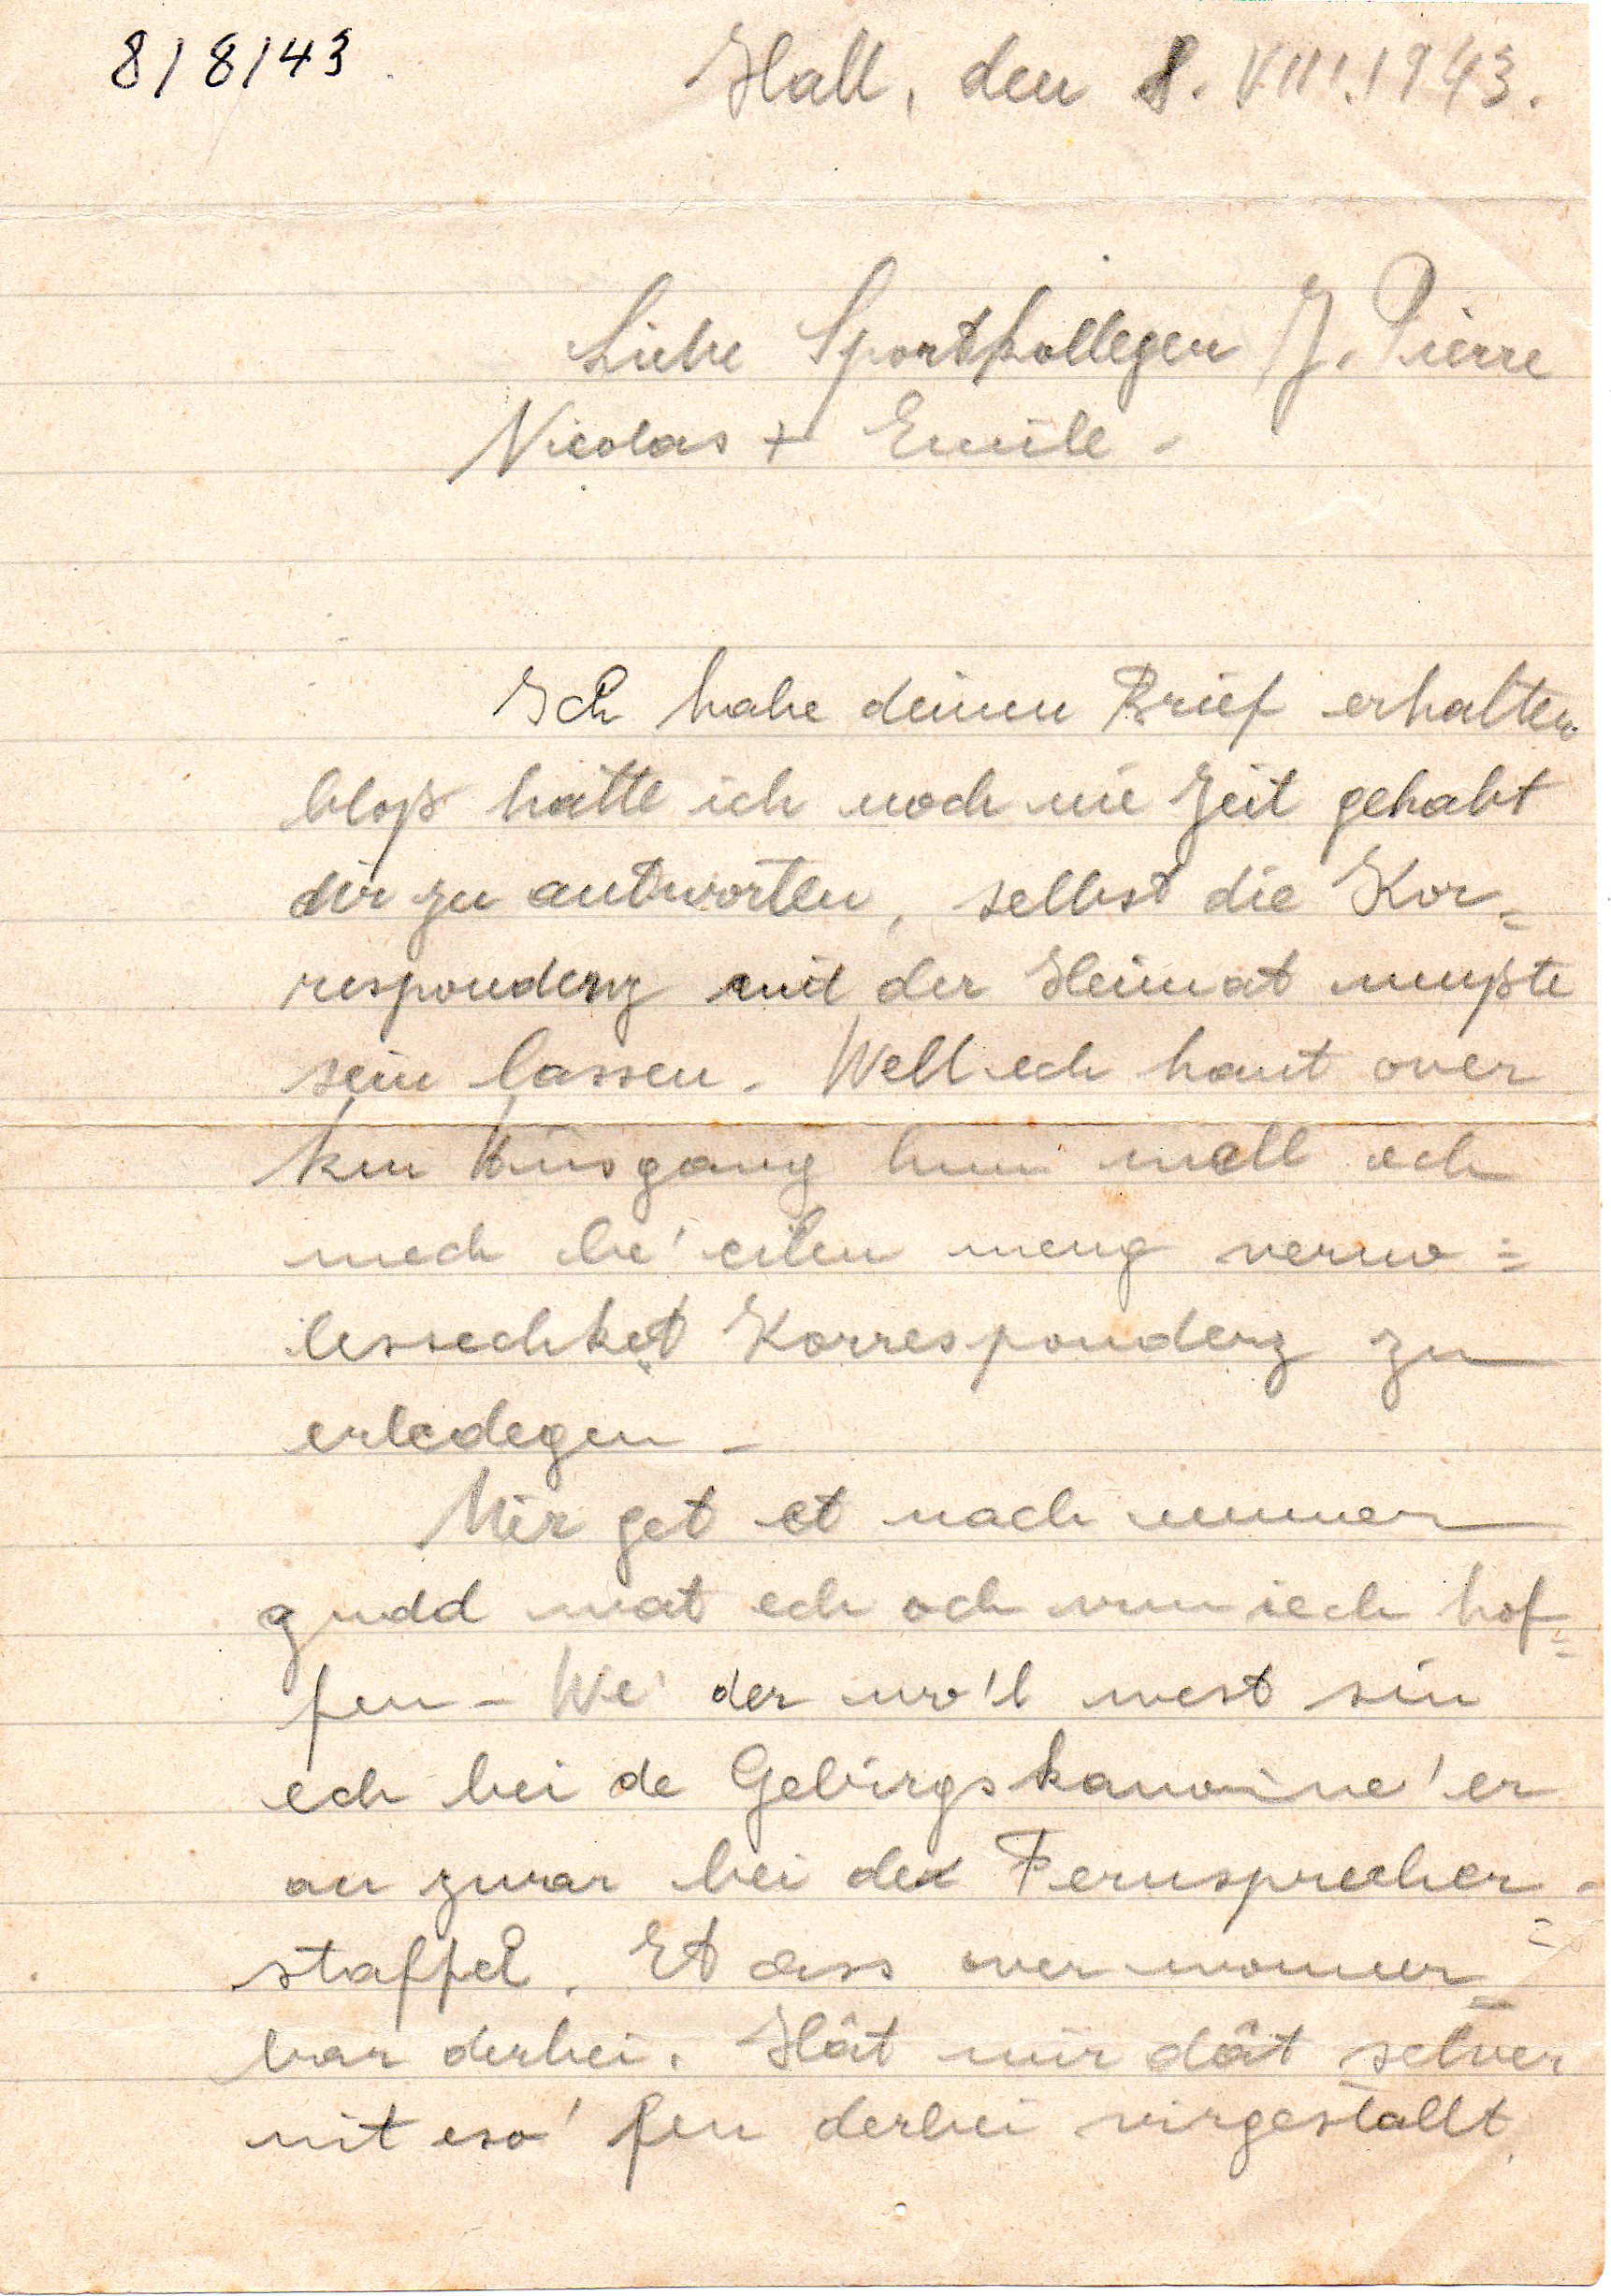 8/8/43
Hall, den 8. VIII. 1943.
Liebe Sportkollegen J. Pierre
Nicolas + Emile -
Ich habe deinen Brief erhalten
bloß hätte ich noch nie Zeit gehabt
dir zu antworten, selbst die Kor=
respondenz mit der Heimat mußte
sein lassen. Well ech haut over
ken Ausgang hun well ech
mech be' eilen meng verno=
lessechket Korrespondenz zu
erledegen -
Mir get et nach ummer
gudd wat ech och vun iech hof=
fen - We' der wo'l west sin
ech bei de Gebirgskanonne'er
an zwar bei der Fernsprecher-
staffel. Et ass over wonner=
bar derbei. Hât mir dât selwer
nit eso' fen derbei virgestallt.